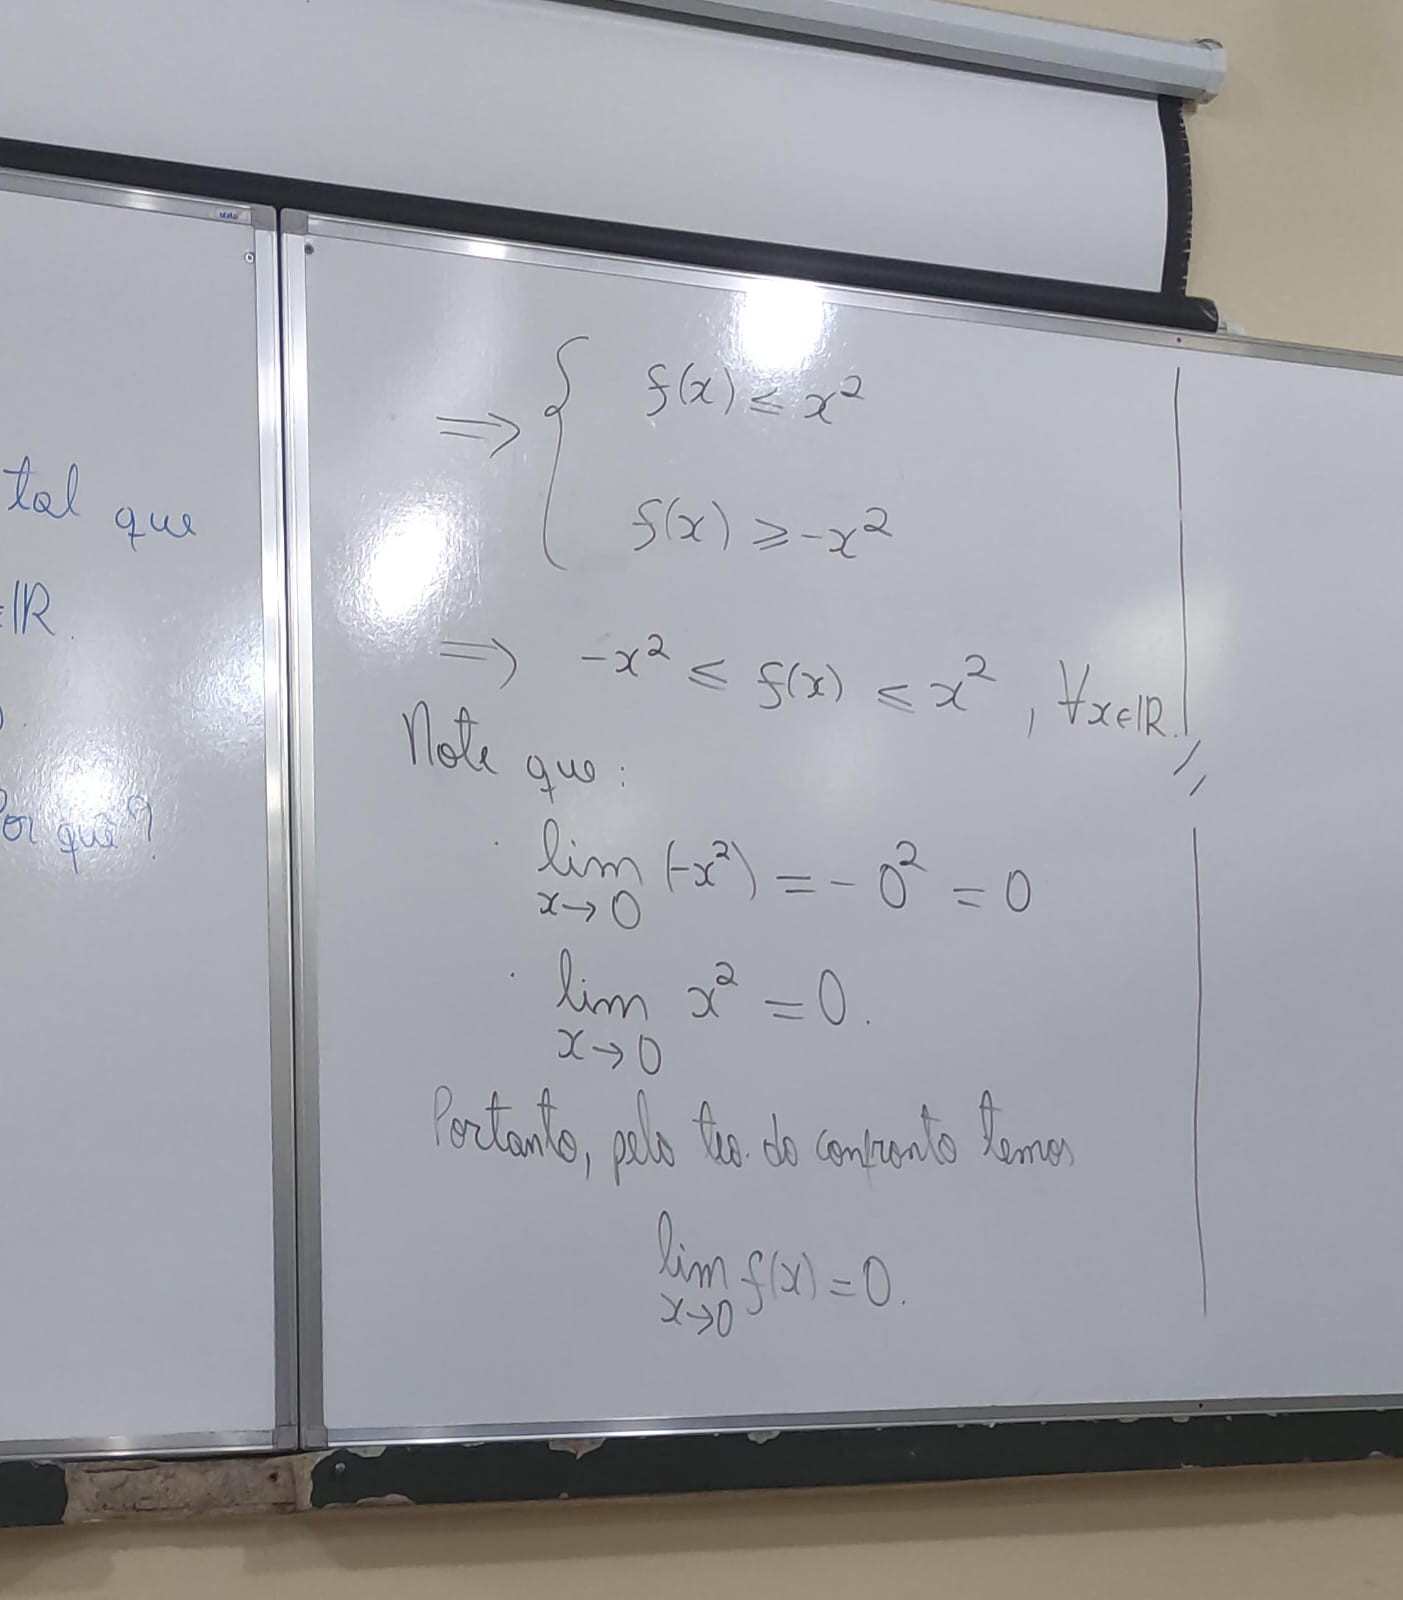 tal que
∈ℝ.
Por quê?
⟹ { f(x) ≤ x²
f(x) ≥ -x²
⟹ -x² ≤ f(x) ≤ x² , ∀x∈ℝ.
Note que:
· lim (-x²) = - 0² = 0
x→0
· lim x² = 0.
x→0
Portanto, pelo teo. do confronto temos
lim f(x) = 0.
x→0